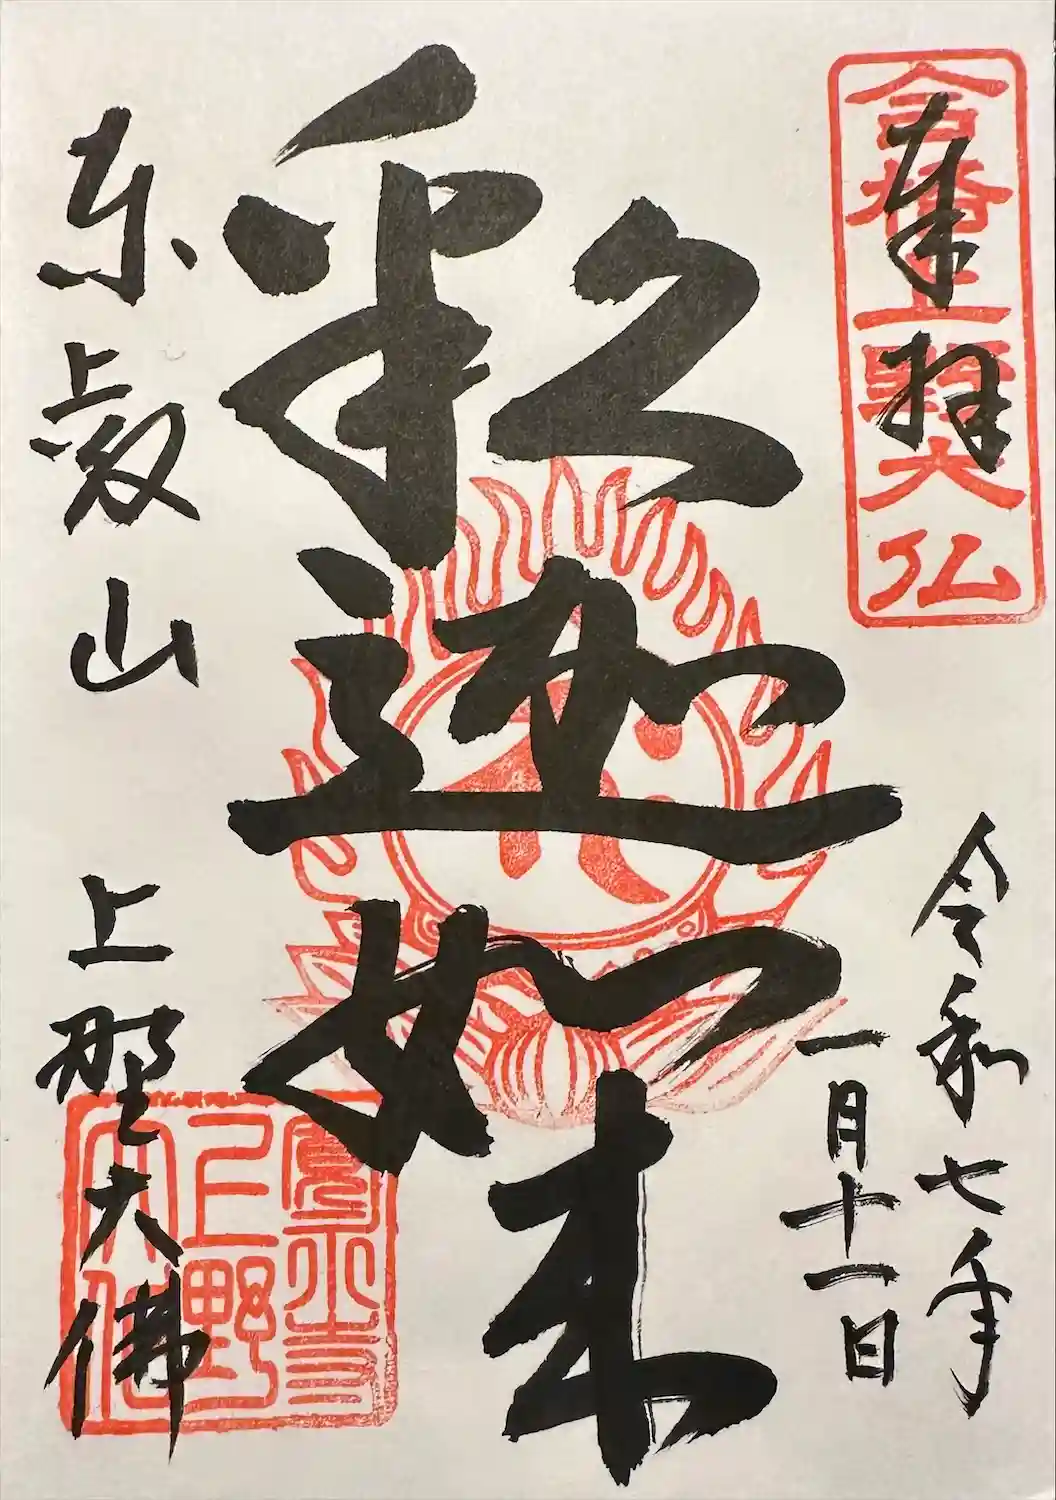 奉拝
合格 上野大仏
令和七年
一月十一日
釈迦如来
東叡山
上野大佛
寛永寺
上野
大仏